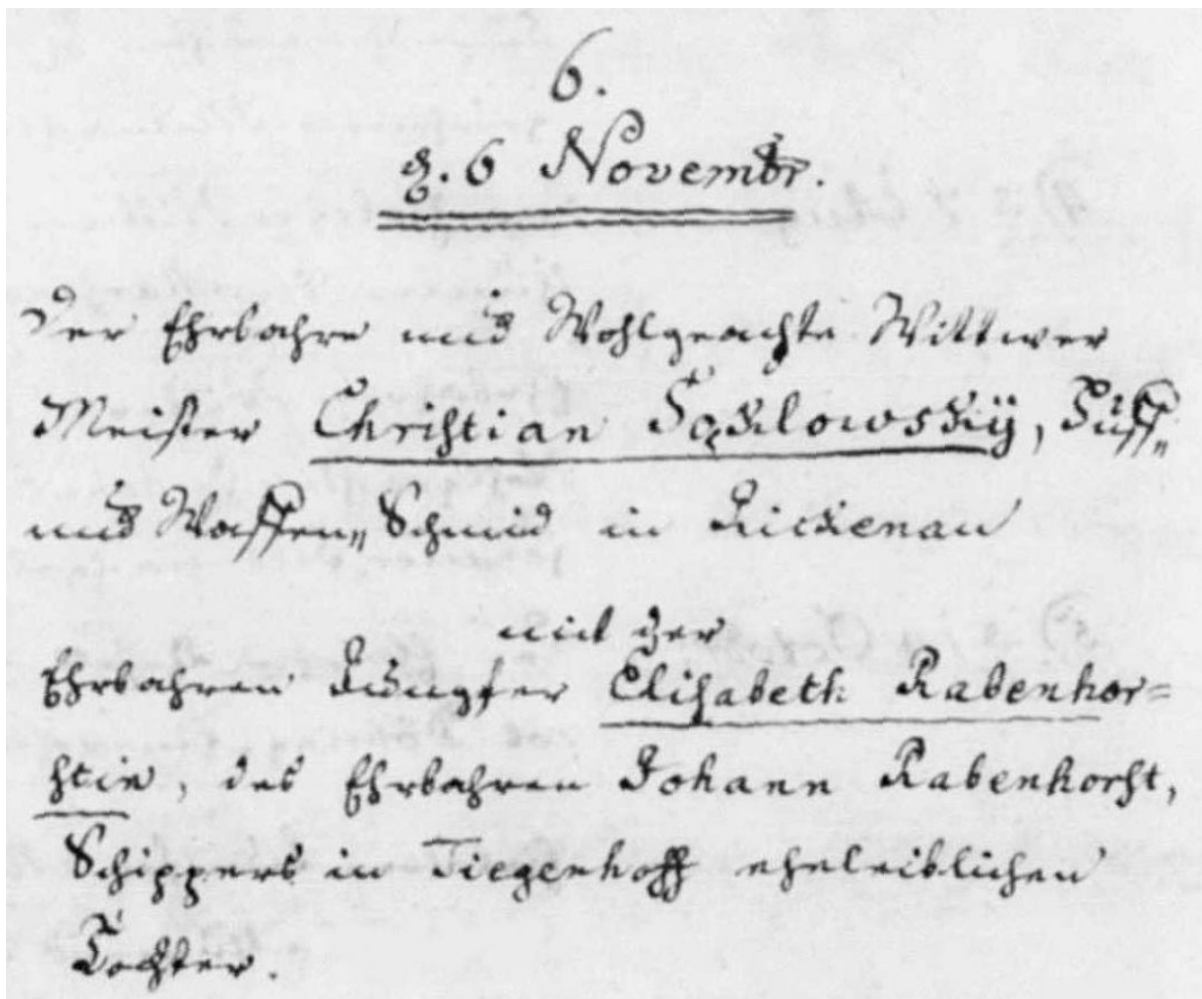 6.
d. 6 Novembr.
Der Ehrbahre und Wohlgeachte Wittwer
Meister Christian
und Waffen„ Schmid in Rickenau
mit der
Ehrbahren Jungfer Elisabeth Rabenhor=
stin, des Ehrbahren Johann Rabenhorst,
Schippers in Tiegenhoff eheleiblichen
Tochter.